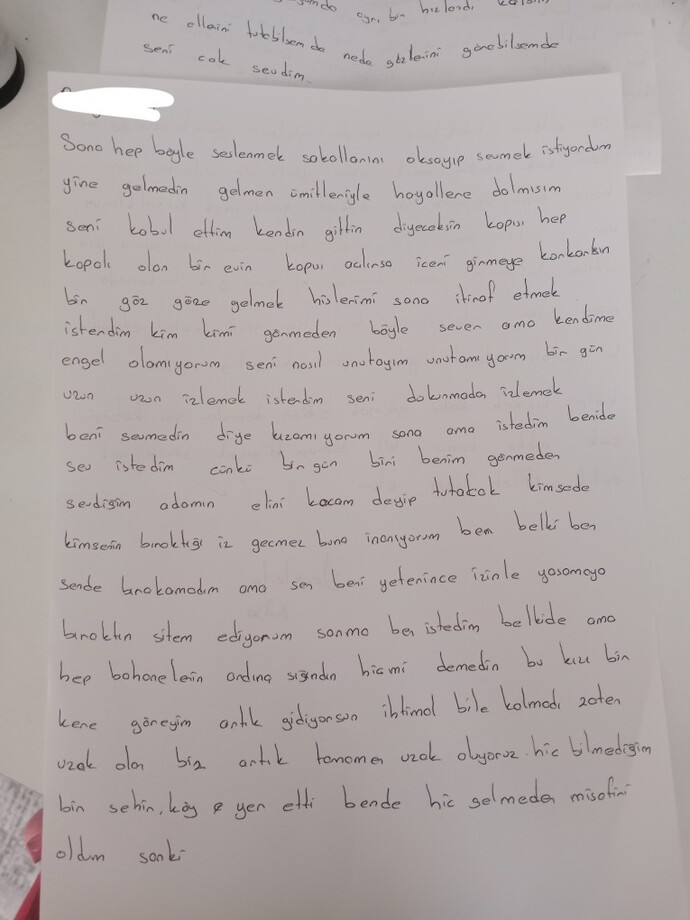 ne ellaini tutabilsem de nede gözlerini görebilsemde
seni cok sevdim
Sana hep böyle seslenmek sakallarını oksayıp sevmek istiyordum
yine gelmedin gelmen ümitleriyle hayallere dalmısım
seni kabul ettim kendin gittin diyeceksin kapısı hep
kapalı olan bir evin kapısı acılırsa iceri girmeye korkarkın
bir göz göze gelmek hislerimi sana itiraf etmek
isterdim kim kimi görmeden böyle sever ama kendime
engel olamıyorum seni nasıl unutayım unutamıyorum bir gün
uzun uzun izlemek isterdim seni dokunmada izlemek
beni sevmedin diye kızamıyorum sana ama istedim benide
sev istedim cünkü bir gün biri benim görmeden
sevdigim adamın elini kocam deyip tutacak kimsede
kimsenin bıraktığı iz gecmez buna inanıyorum ben belki ben
sende bırakamadım ama sen beni yeterince izinle yasamaya
bıraktın sitem ediyorum sanma ben istedim belkide ama
hep bahanelerin ardına sığındın hicmi demedin bu kızı bir
kere göreyim artık gidiyorsun ihtimal bile kalmadı zaten
uzak olan biz artık tamamen uzak oluyoruz. hic bilmedigim
bir sehir, köy yer etti bende hic gelmeden misafiri
oldum sanki